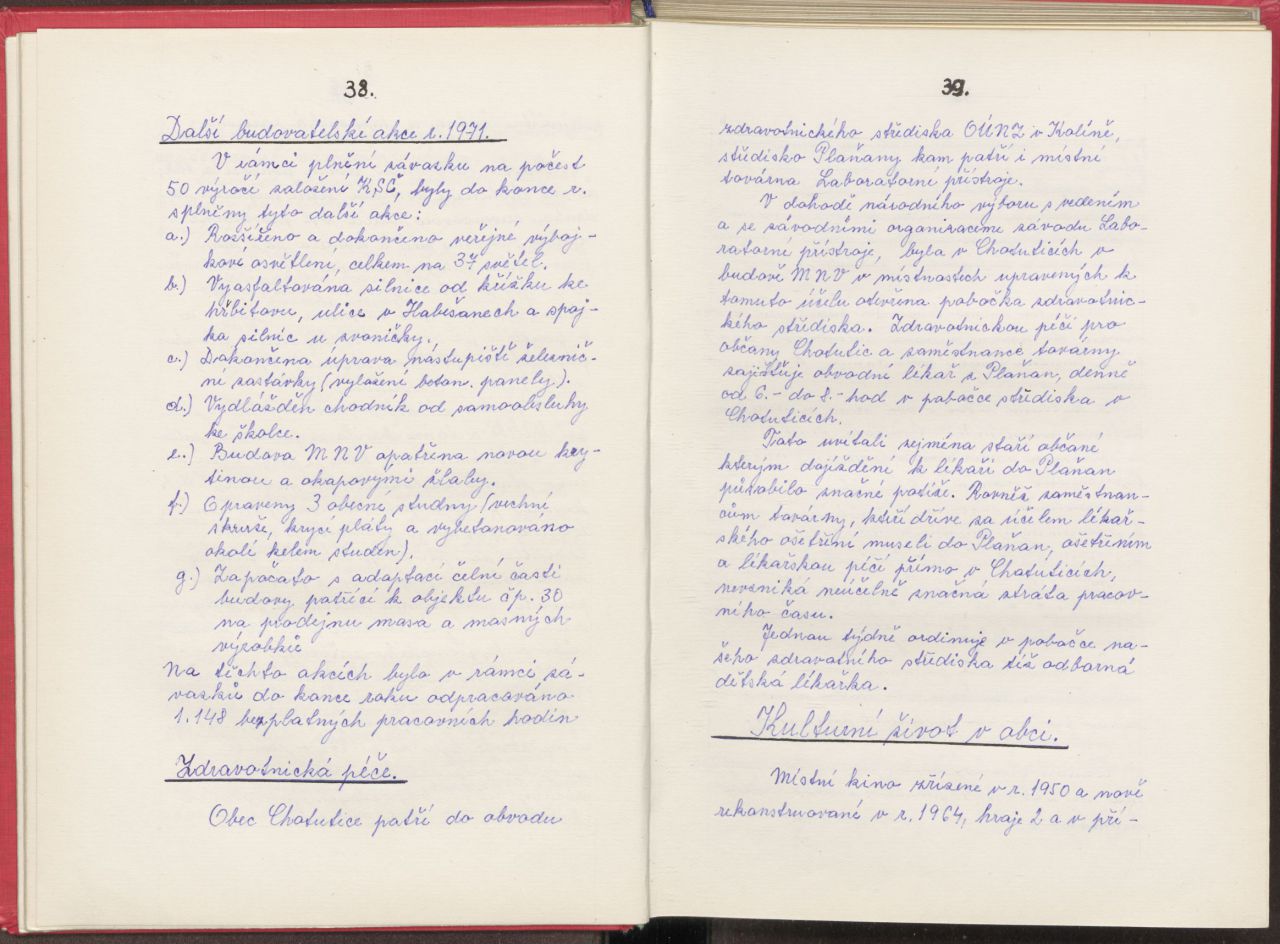 38.
Další budovatelské akce r. 1971.
V rámci plnění závazku na počest
50 výročí založení KSČ, byly do konce r.
splněny tyto další akce:
a.) Rozšířeno a dokončeno veřejné výboj-
kové osvětlení, celkem na 37 světel.
b.) Vyasfaltována silnice od křížku ke
hřbitovu, ulice v Habešanech a spoj-
ka silnic u zvoničky.
c.) Dokončena úprava nástupiště železnič-
ní zastávky (vyložení beton. panely).
d.) Vydlážděn chodník od samoobsluhy
ke školce.
e.) Budova MNV opatřena novou kry-
tinou a okapovými žlaby.
f.) Opraveny 3 obecné studny (vrchní
skruže, krycí pláty a vybetonováno
okolí kolem studen).
g.) Započato s adaptací čelní části
budovy patřící k objektu čp. 30
na prodejnu masa a masných
výrobků
Na těchto akcích bylo v rámci zá-
vazků do konce roku odpracováno
1.148 bezplatných pracovních hodin
Zdravotnická péče.
Obec Chotutice patří do obvodu
39.
zdravotnického střediska OÚNZ v Kolíně,
středisko Plaňany kam patří i místní
továrna Laboratorní přístroje.
V dohodě národního výboru s vedením
a se závodními organizacemi závodu Labo-
ratorní přístroje, byla v Chotuticích v
budově MNV v místnostech upravených k
tomuto účelu otevřena pobočka zdravotnic-
kého střediska. Zdravotnickou péčí pro
občany Chotutic a zaměstnance továrny
zajišťuje obvodní lékař z Plaňan, denně
od 6.- do 8.- hod v pobočce střediska v
Chotuticích.
Toto uvítali zejména staří občané
kterým dojíždění k lékaři do Plaňan
působilo značné potíže. Rovněž zaměstnan-
cům továrny, kteří dříve za účelem lékař-
ského ošetření museli do Plaňan, ošetřením
a lékařskou péčí přímo v Chotuticích,
nevzniká neúčelně značná ztráta pracov-
ního času.
Jednou týdně ordinuje v pobočce na-
šeho zdravotního střediska též odborná
dětská lékařka.
Kulturní život v obci.
Místní kino zřízené v r. 1950 a nově
rekonstruované v r. 1964, hraje 2 a v pří-